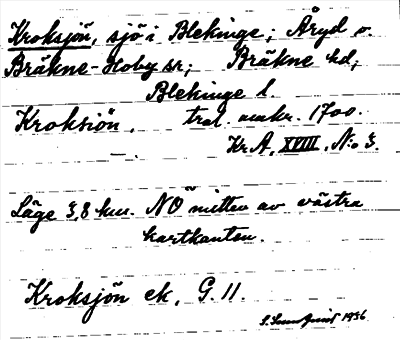 Kroksjön, sjö i Blekinge; Åryd o.
Bräkne-Hoby sr; Bräkne hd;
Blekinge l.
Kroksiön, trol. omkr. 1700.
Kr.A. XVIII, N:o 3.
Läge 3,8 km. NO mitten av västra
kartkanten.
Kroksjön ek. G. 11.
1936